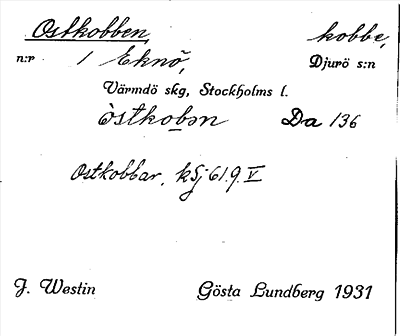 Ostkobben, kobbe,
n:r 1 Eknö, Djurö s:n
Värmdö skg, Stockholms l.
òstkobən Da 136
Ostkobbar, kSj 61.9.V
J. Westin Gösta Lundberg 1931